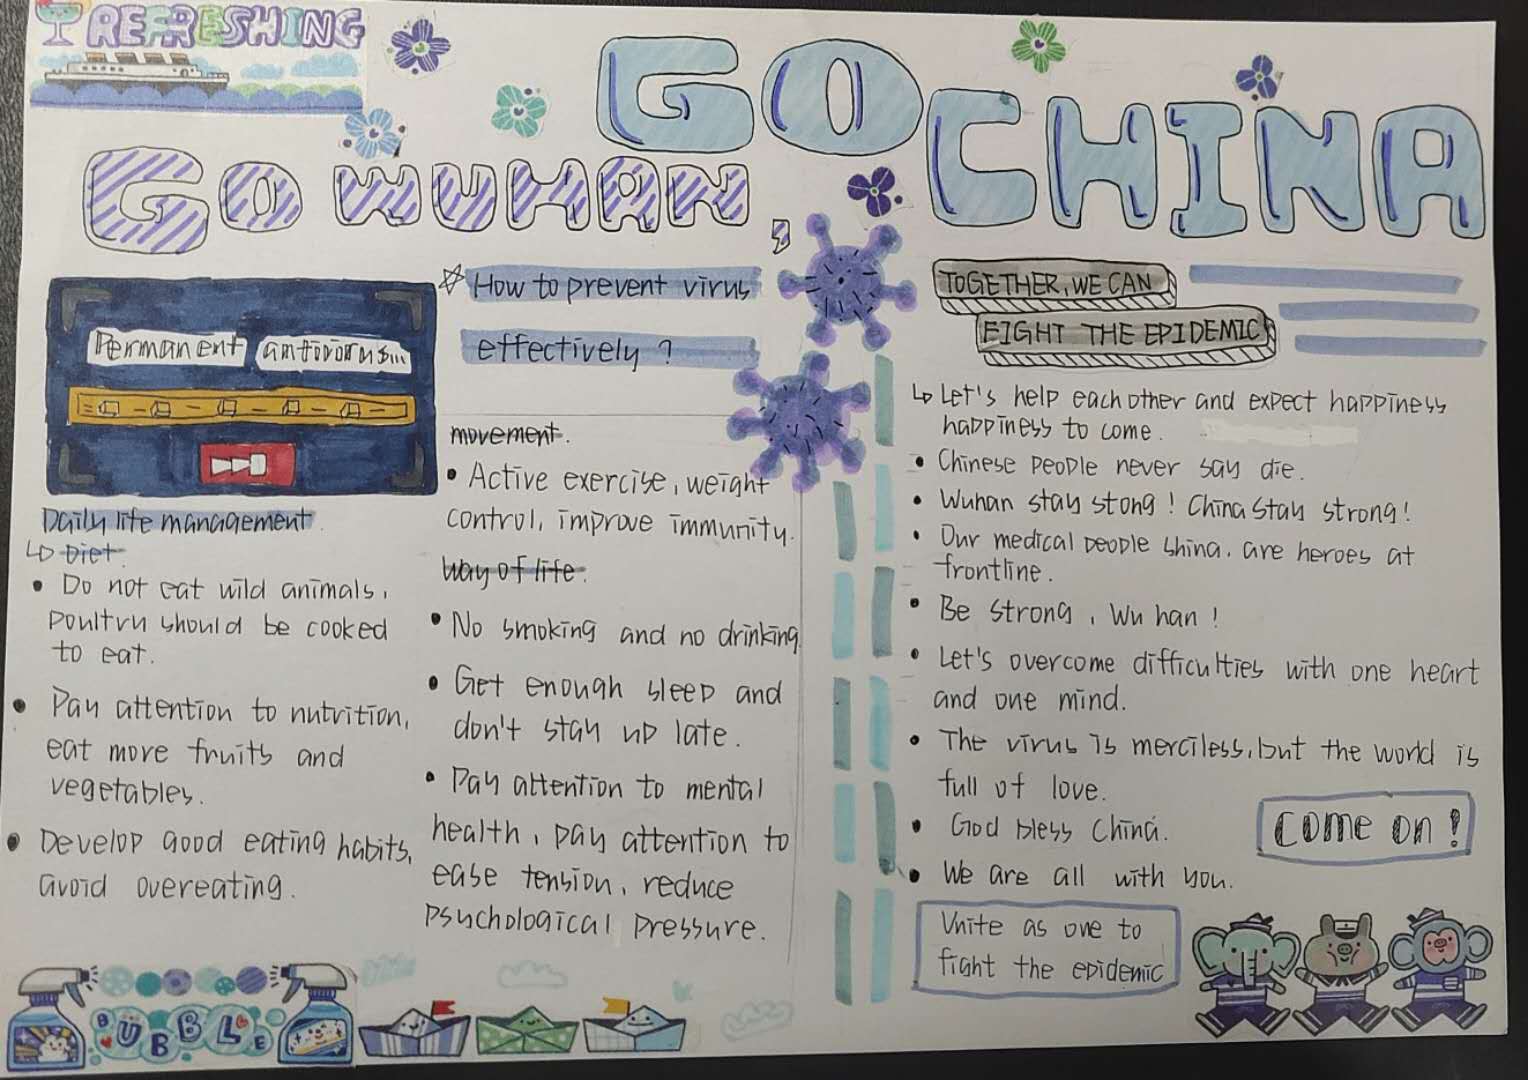 REFRESHING
GO CHINA
GO WUHAN,
Permanent antivirus...
Daily life management
Diet
• Do not eat wild animals,
poultry should be cooked
to eat.
• Pay attention to nutrition,
eat more fruits and
vegetables.
• Develop good eating habits,
avoid overeating.
How to prevent virus
effectively ?
movement.
• Active exercise, weight
control, improve immunity.
Way of life.
• No smoking and no drinking
• Get enough sleep and
don't stay up late.
• Pay attention to mental
health, pay attention to
ease tension, reduce
psychological pressure.
TOGETHER, WE CAN
FIGHT THE EPIDEMIC
Let's help each other and expect happiness
happiness to come.
• Chinese people never say die.
• Wuhan stay stong! China stay strong!
• Our medical people shina. are heroes at
frontline.
• Be strong, Wu han!
• Let's overcome difficulties with one heart
and one mind.
• The virus is merciless, but the world is
full of love.
• God bless China.
• We are all with you.
COME ON!
Unite as one to
fight the epidemic
BUBBLE